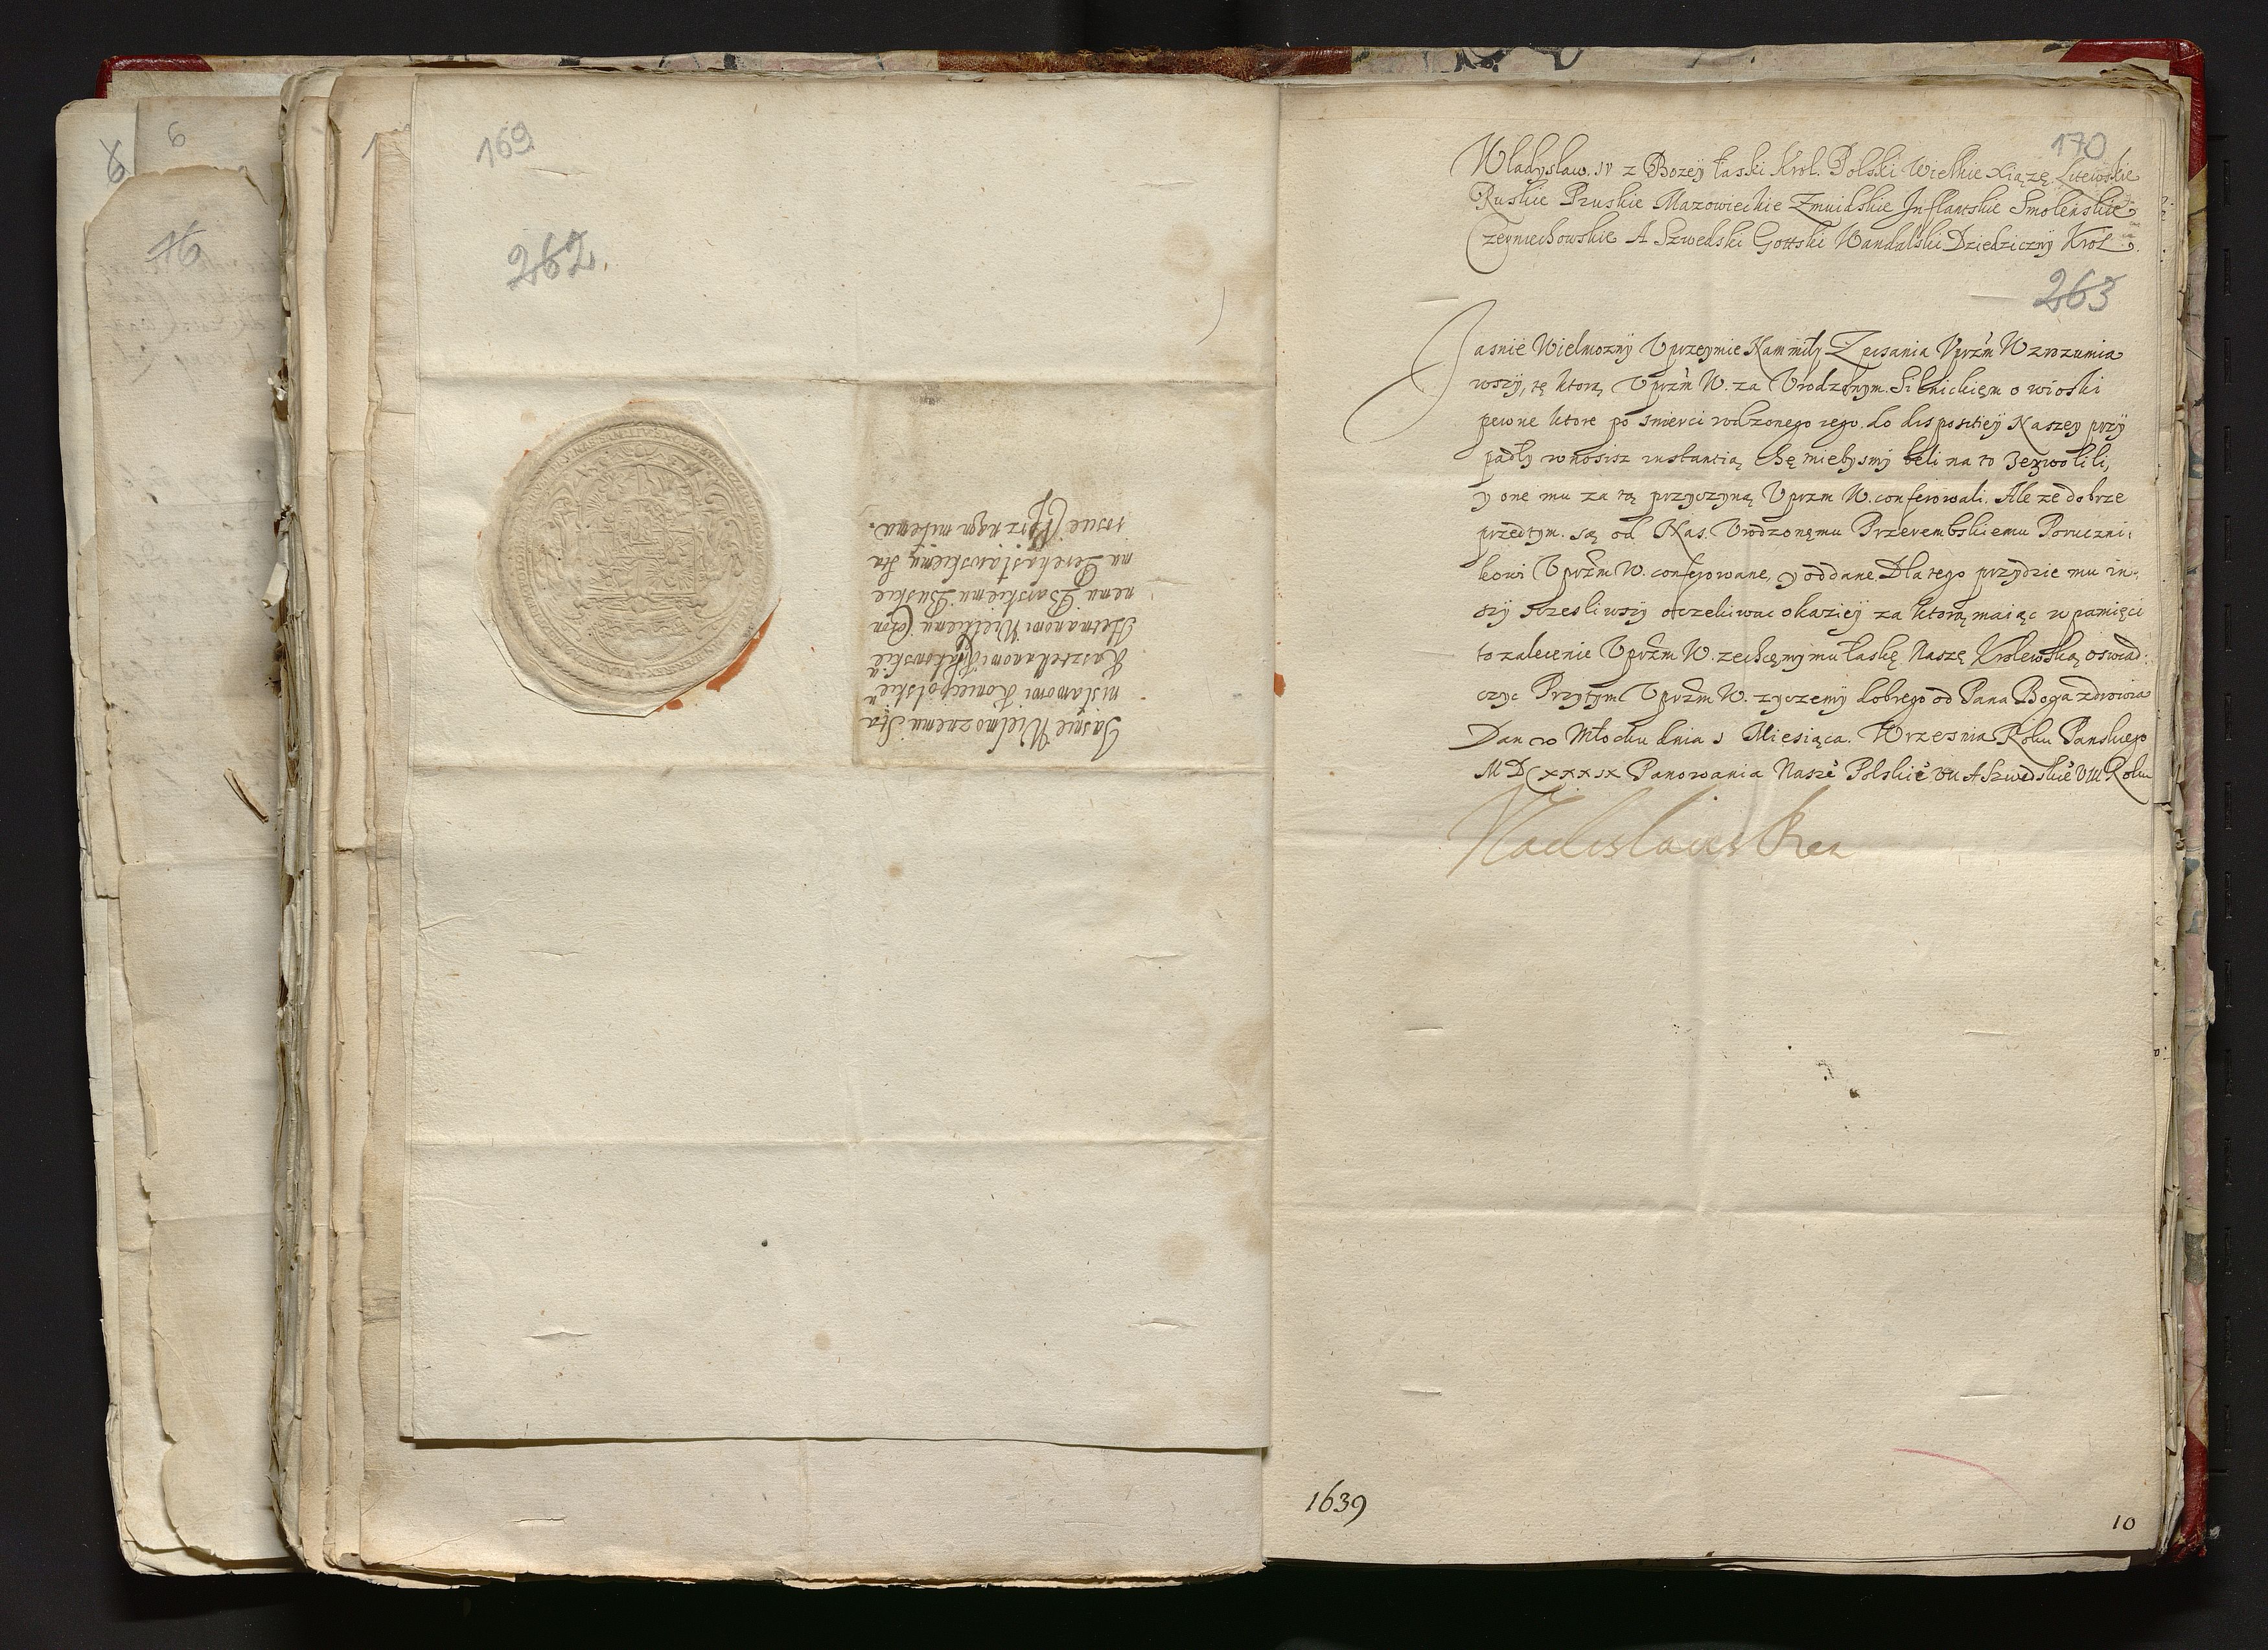 169
262.
Jasnie Wielmoznemu Sta
nisławowi Koniecpolskie
Kasztellanowi Krakowskie
Hetmanowi Wielkiemu Coron
nemu Barskiemu Buskie
mu Perekasławskiemu Sta
roscie Uprzeym miłemu.
6
16
170
Władysław. IV z Bozey Łaski Krol. Polski Wielkie Xiązę Litewskie
Ruskie Pruskie Mazowieckie Zmuidskie Inflantskie Smolenskie
Czerniechowskie A Szwedski Gottski Wandalski Dziedziczny Krol
263
Jasnie Wielmozny Uprzeymie Nam miły Z pisania Uprzm W zrozumia
wszy, tę ktorą Uprzm W. za Urodzonym. Silnickięm o wioski
pewne ktore po smierci rodzonego iego. do disposiciey Naszey przy
padły wnosisz instantią, chę miebysmy beli na to zezwolili,
y one mu za tą przyczyną Uprzm W. conferowali. Ale ze dobrze
przedtym. są od Nas. Urodzonęmu Przerembskiemu Poruczni:
kowi Uprzm W. conferowane, y oddane Dla tego przydzie mu in:
szy sczesliwszy oczekiwac okaziey za ktorą maiąc w pamięci
to zalecenie Uprzm W. zechcęmy mu łaskę Naszę Krolewską oswiad:
czyc Przytym Uprzm W. zyczemy dobrego od Pana Boga zdrowia
Dan w Młocku dnia 1 Miesiąca. Wrzesnia Roku Panskiego
MDCXXXIX Panowania Nasze Polskie VII A Szwedskie VIII Roku
Vladislaus Rex
1639
10